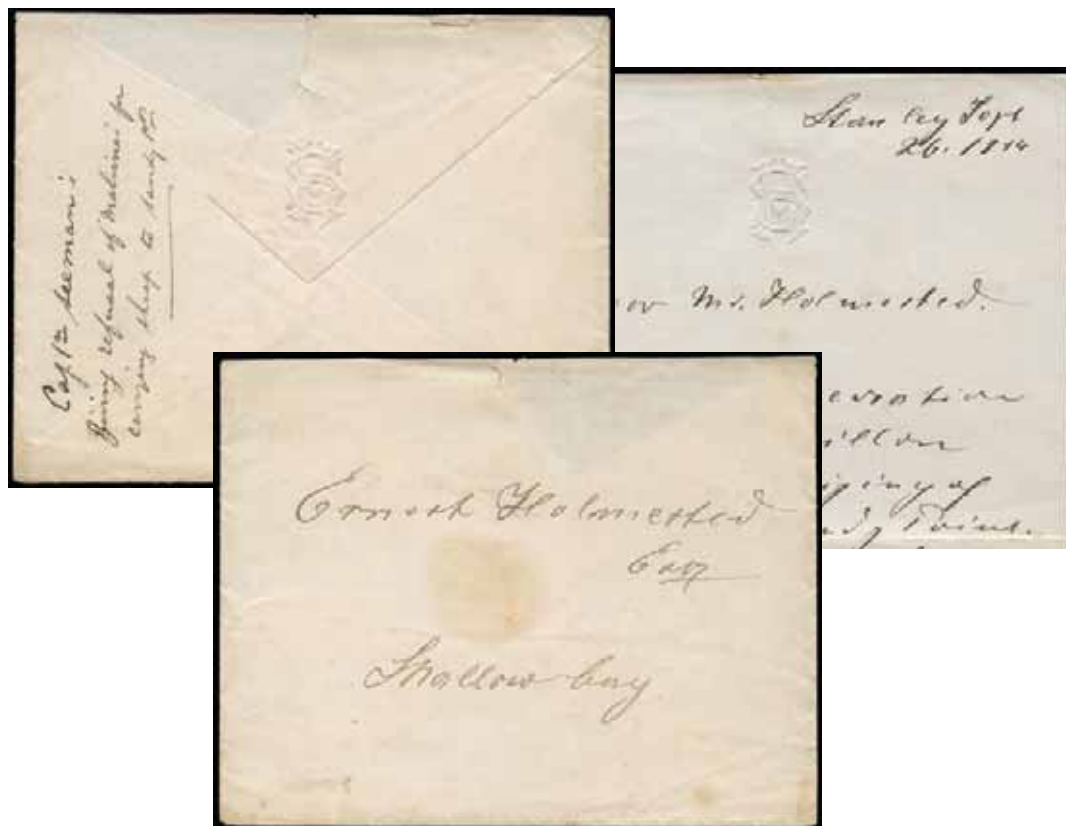 Capt Seeman's
giving refusal of Malvina for
carrying sheep to Sandy Pt
Stanley Sept
26. 18
Mr. Holmested.
Ernest Holmested
Esq
Shallow bay